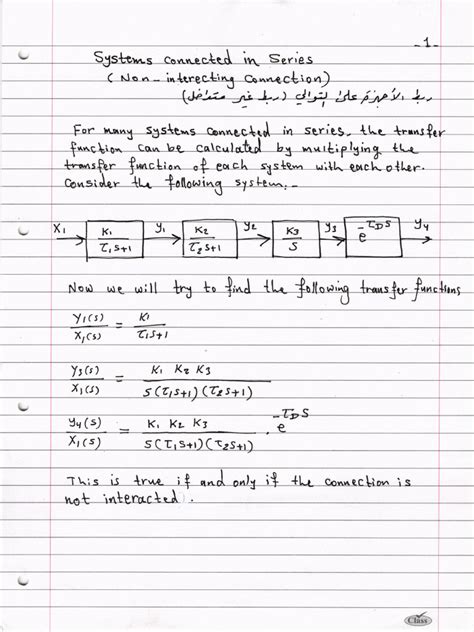 -1-
Systems connected in Series
(Non-interecting Connection)
ربط الأجهزة على التوالي (ربط غير متداخل)
For many systems connected in series, the transfer
function can be calculated by multiplying the
transfer function of each system with each other.
Consider the following system:-
X₁ K₁/(τ₁s+1) y₁ K₂/(τ₂s+1) y₂ K₃/s y₃ e^(-τ_D s) y₄
Now we will try to find the following transfer functions
y₁(s)/X₁(s) = K₁/(τ₁s+1)
y₃(s)/X₁(s) = K₁ K₂ K₃/(s(τ₁s+1)(τ₂s+1))
y₄(s)/X₁(s) = K₁ K₂ K₃/(s(τ₁s+1)(τ₂s+1)) . e^(-τ_D s)
This is true if and only if the connection is
not interacted.
Class